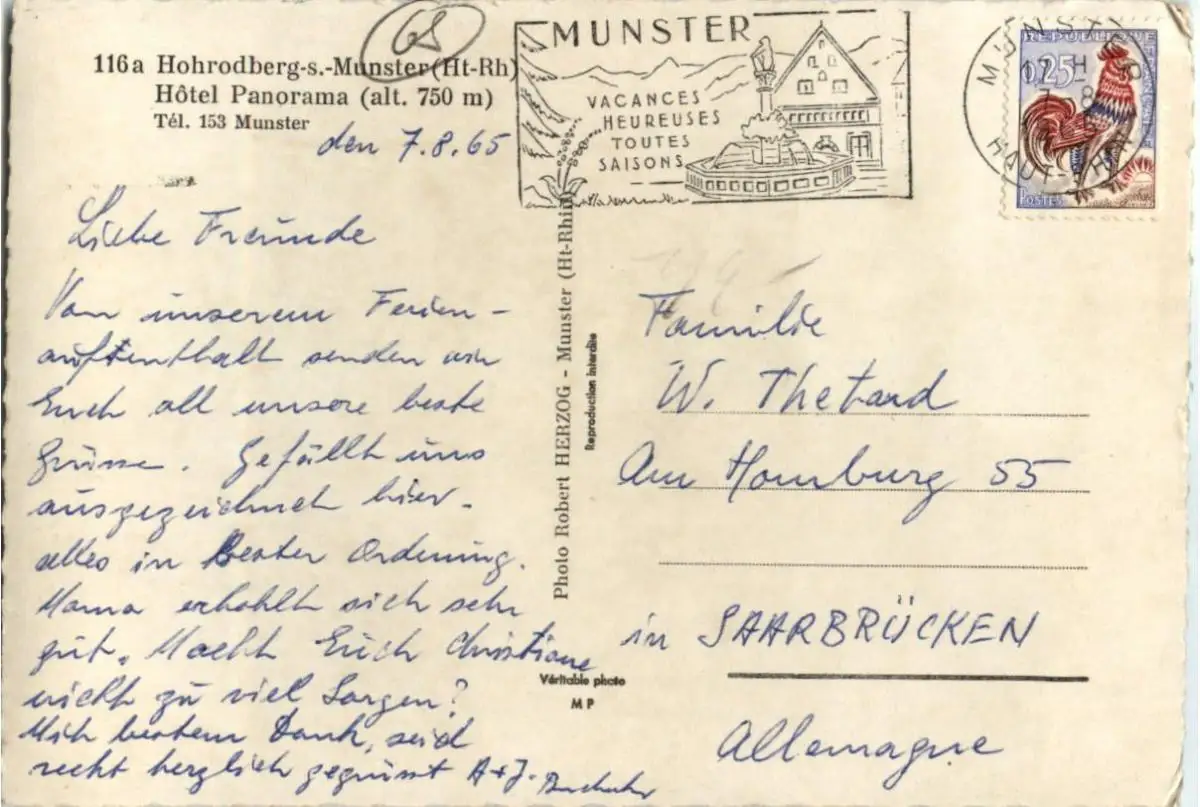 68
116a Hohrodberg-s.-Munster (Ht-Rh)
Hôtel Panorama (alt. 750 m)
Tél. 153 Munster
den 7.8.65
Liebe Freunde
Von unserem Ferien-
aufenthalt senden wir
Euch all unsere beste
Grüsse. Gefällt uns
ausgezeichnet hier.
alles in bester Ordnung.
Mama erhohlt sich sehr
gut. Macht Euch Christiane
nicht zu viel Sorgen?
Mit bestem Dank, seid
recht herzlich gegrüsst A+J.
MUNSTER
VACANCES
HEUREUSES
TOUTES
SAISONS
MUNSTER
17 H
7 8
HAUT-RHIN
REPUBLIQUE FRANÇAISE
0,25
POSTES
Photo Robert HERZOG - Munster (Ht-Rhin)
Reproduction interdite
Véritable photo
MP
Familie
W. Thetard
Am Homburg 55
in SAARBRÜCKEN
Allemagne